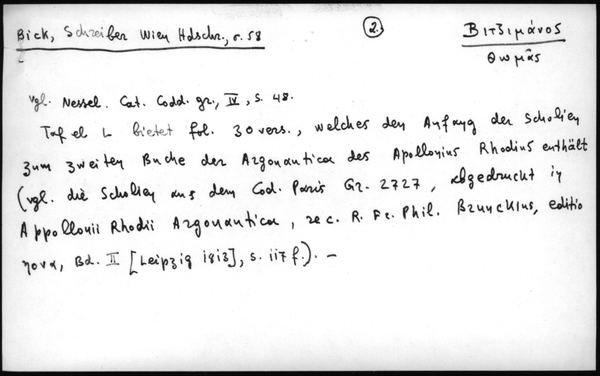 Bick, Schreiber Wien Hdschr., σ. 58
2.
Βιτζιμάνος
Θωμᾶς
vgl. Nessel. Cat. Codd. gr., IV, S. 48.
Tafel L bietet fol. 30 vers., welches den Anfang der Scholien
zum zweiten Buche der Argonautica des Apollonius Rhodius enthält
(vgl. die Scholien aus dem Cod. Paris Gr. 2727, abgedruckt in
Appollonii Rhodii Argonautica, rec. R. Fr. Phil. Brunckius, editio
nova, Bd. II [Leipzig 1813], S. 117 f.). —